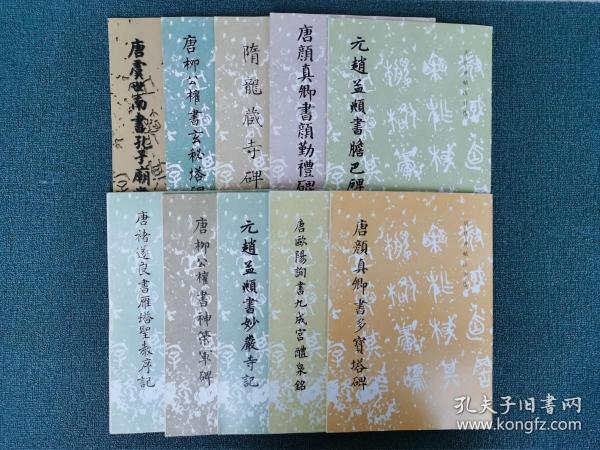 唐虞世南書孔子廟堂
唐柳公權書玄秘塔碑
隋龍藏寺碑
唐顏真卿書顏勤禮碑
元趙孟頫書膽巴碑
唐褚遂良書雁塔聖教序記
唐柳公權書神策軍碑
元趙孟頫書妙嚴寺記
唐歐陽詢書九成宮醴泉銘
唐顏真卿書多寶塔碑
孔夫子旧书网
www.kongfz.com